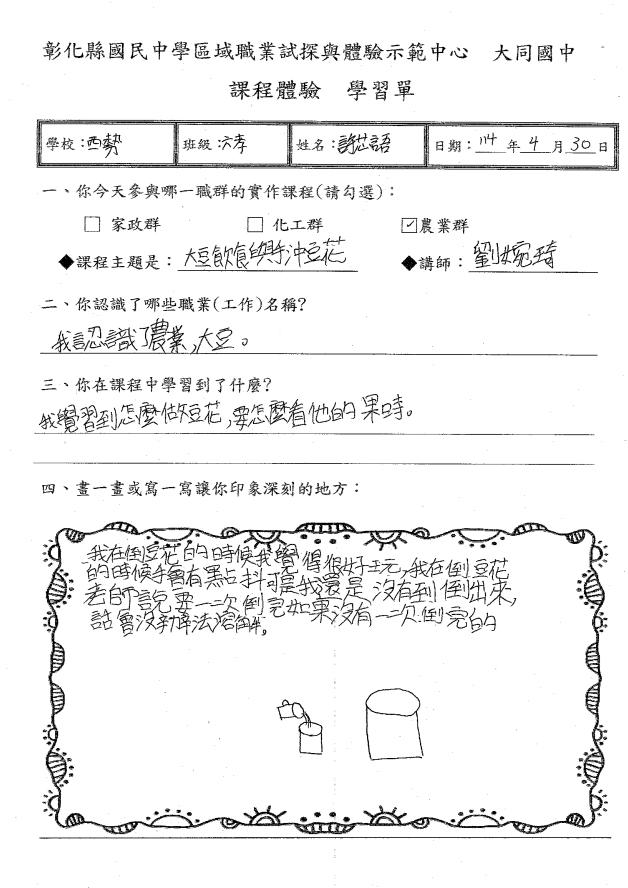 彰化縣國民中學區域職業試探與體驗示範中心 大同國中
課程體驗 學習單
學校：西勢 班級：六孝 姓名：許芯語 日期：114年4月30日
一、你今天參與哪一職群的實作課程(請勾選)：
□ 家政群 □ 化工群 ☑農業群
◆課程主題是：大豆飲食與手沖豆花 ◆講師：劉婉琦
二、你認識了哪些職業(工作)名稱?
我認識了農業,大豆。
三、你在課程中學習到了什麼?
我覺習到怎麼做豆花,要怎麼看他的果時。
四、畫一畫或寫一寫讓你印象深刻的地方：
我在倒豆花的時候我覺得很好玩,我在倒豆花
的時候手會有點抖可是我還是沒有到倒出來,
老師說要一次倒完如果沒有一次倒完的
話會沒辦法溶解。